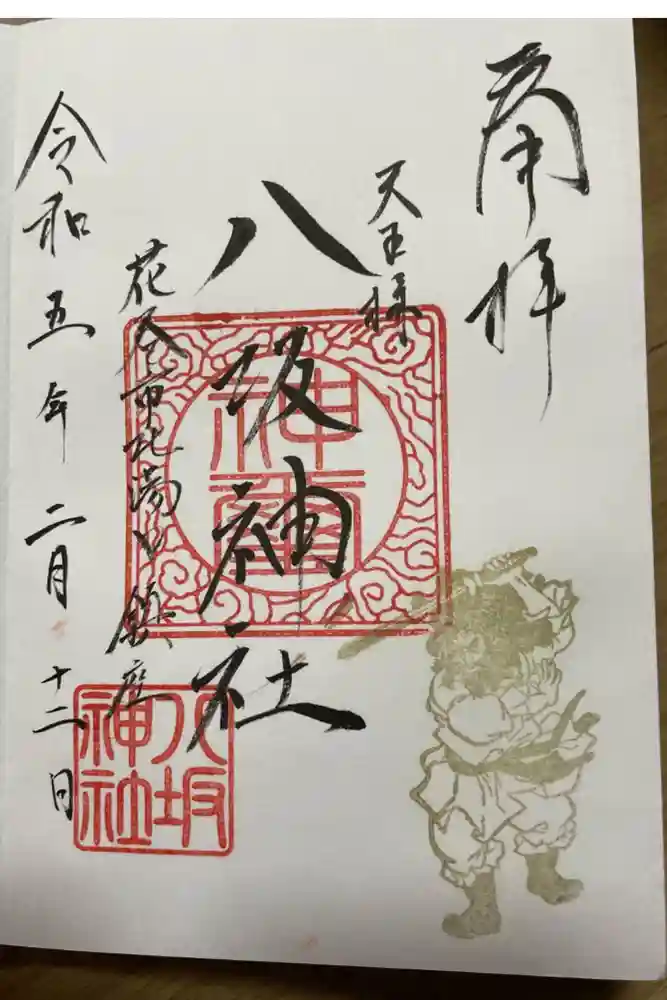 奉拝
天王様
八坂神社
花巻市北湯口 鎮座
令和五年二月十二日
神璽
八坂
神社